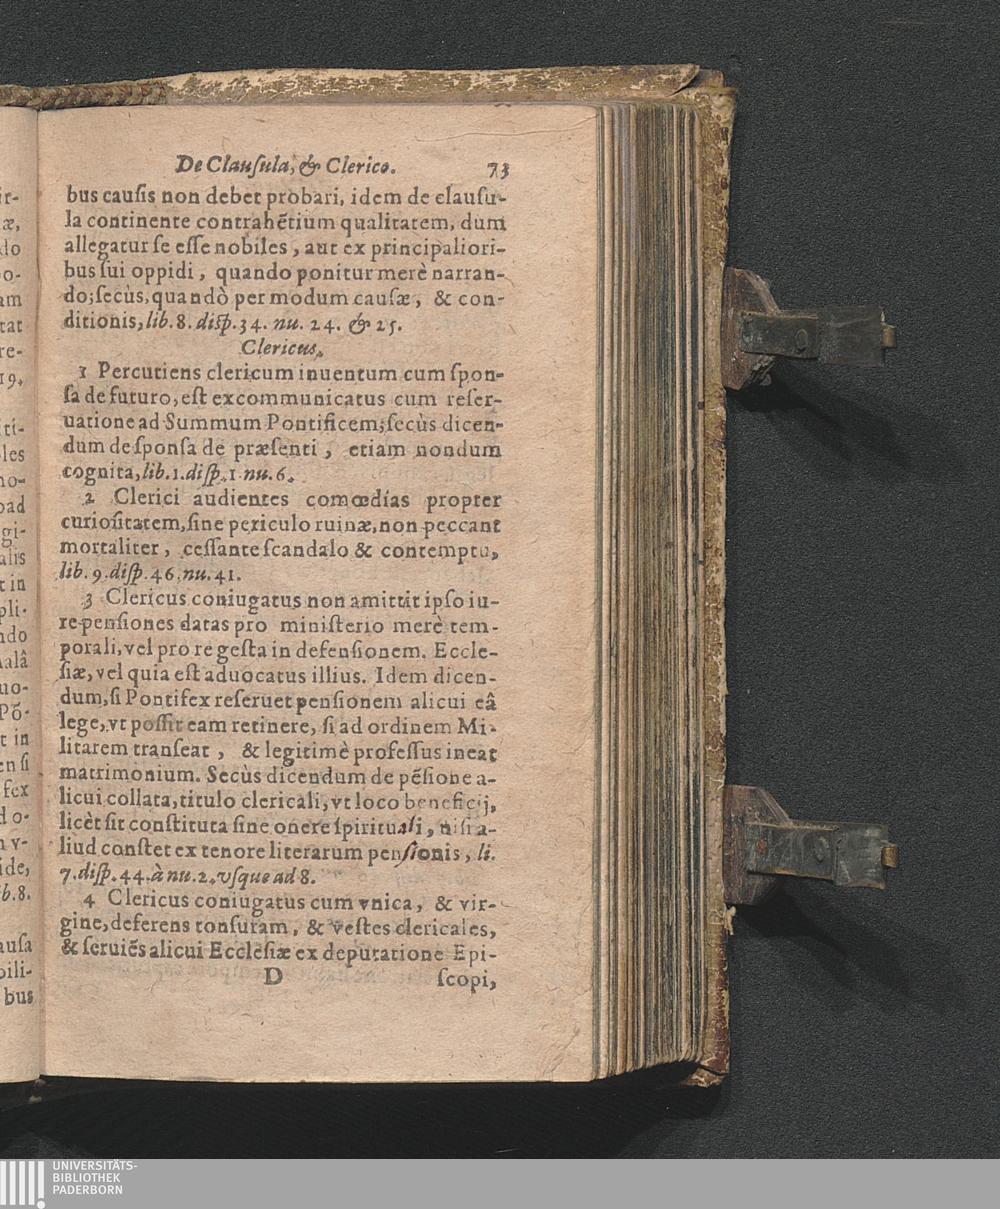 De Clauſula, & Clerico. 73
bus cauſis non debet probari, idem de clauſu-
la continente contrahẽtium qualitatem, dum
allegatur ſe eſſe nobiles, aut ex principaliori-
bus ſui oppidi, quando ponitur merè narran-
do; ſecùs, quandò per modum cauſæ, & con-
ditionis, lib. 8. diſp. 34. nu. 24. & 25.
Clericus.
1 Percutiens clericum inuentum cum ſpon-
ſa de futuro, eſt excommunicatus cum reſer-
uatione ad Summum Pontificem; ſecùs dicen-
dum de ſponſa de præſenti, etiam nondum
cognita, lib. 1. diſp. 1 nu. 6.
2 Clerici audientes comœdías propter
curioſitatem, ſine periculo ruinæ, non peccant
mortaliter, ceſſante ſcandalo & contemptu,
lib. 9. diſp. 46. nu. 41.
3 Clericus coniugatus non amittit ipſo iu-
re penſiones datas pro miniſterio merè tem-
porali, vel pro re geſta in defenſionem. Eccle-
ſiæ, vel quia eſt aduocatus illius. Idem dicen-
dum, ſi Pontifex reſeruet penſionem alicui eâ
lege, vt poſſit eam retinere, ſi ad ordinem Mi-
litarem tranſeat, & legitimè profeſſus ineat
matrimonium. Secùs dicendum de pẽſione a-
licui collata, titulo clericali, vt loco beneficij,
licèt ſit conſtituta ſine onere ſpirituali, niſi a-
liud conſtet ex tenore literarum penſionis, li.
7. diſp. 44. à nu. 2. vſque ad 8.
4 Clericus coniugatus cum vnica, & vir-
gine, deferens tonſuram, & veſtes clericales,
& ſeruiẽs alicui Eccleſiæ ex deputatione Epi-
D ſcopi,
UNIVERSITÄTS-
BIBLIOTHEK
PADERBORN